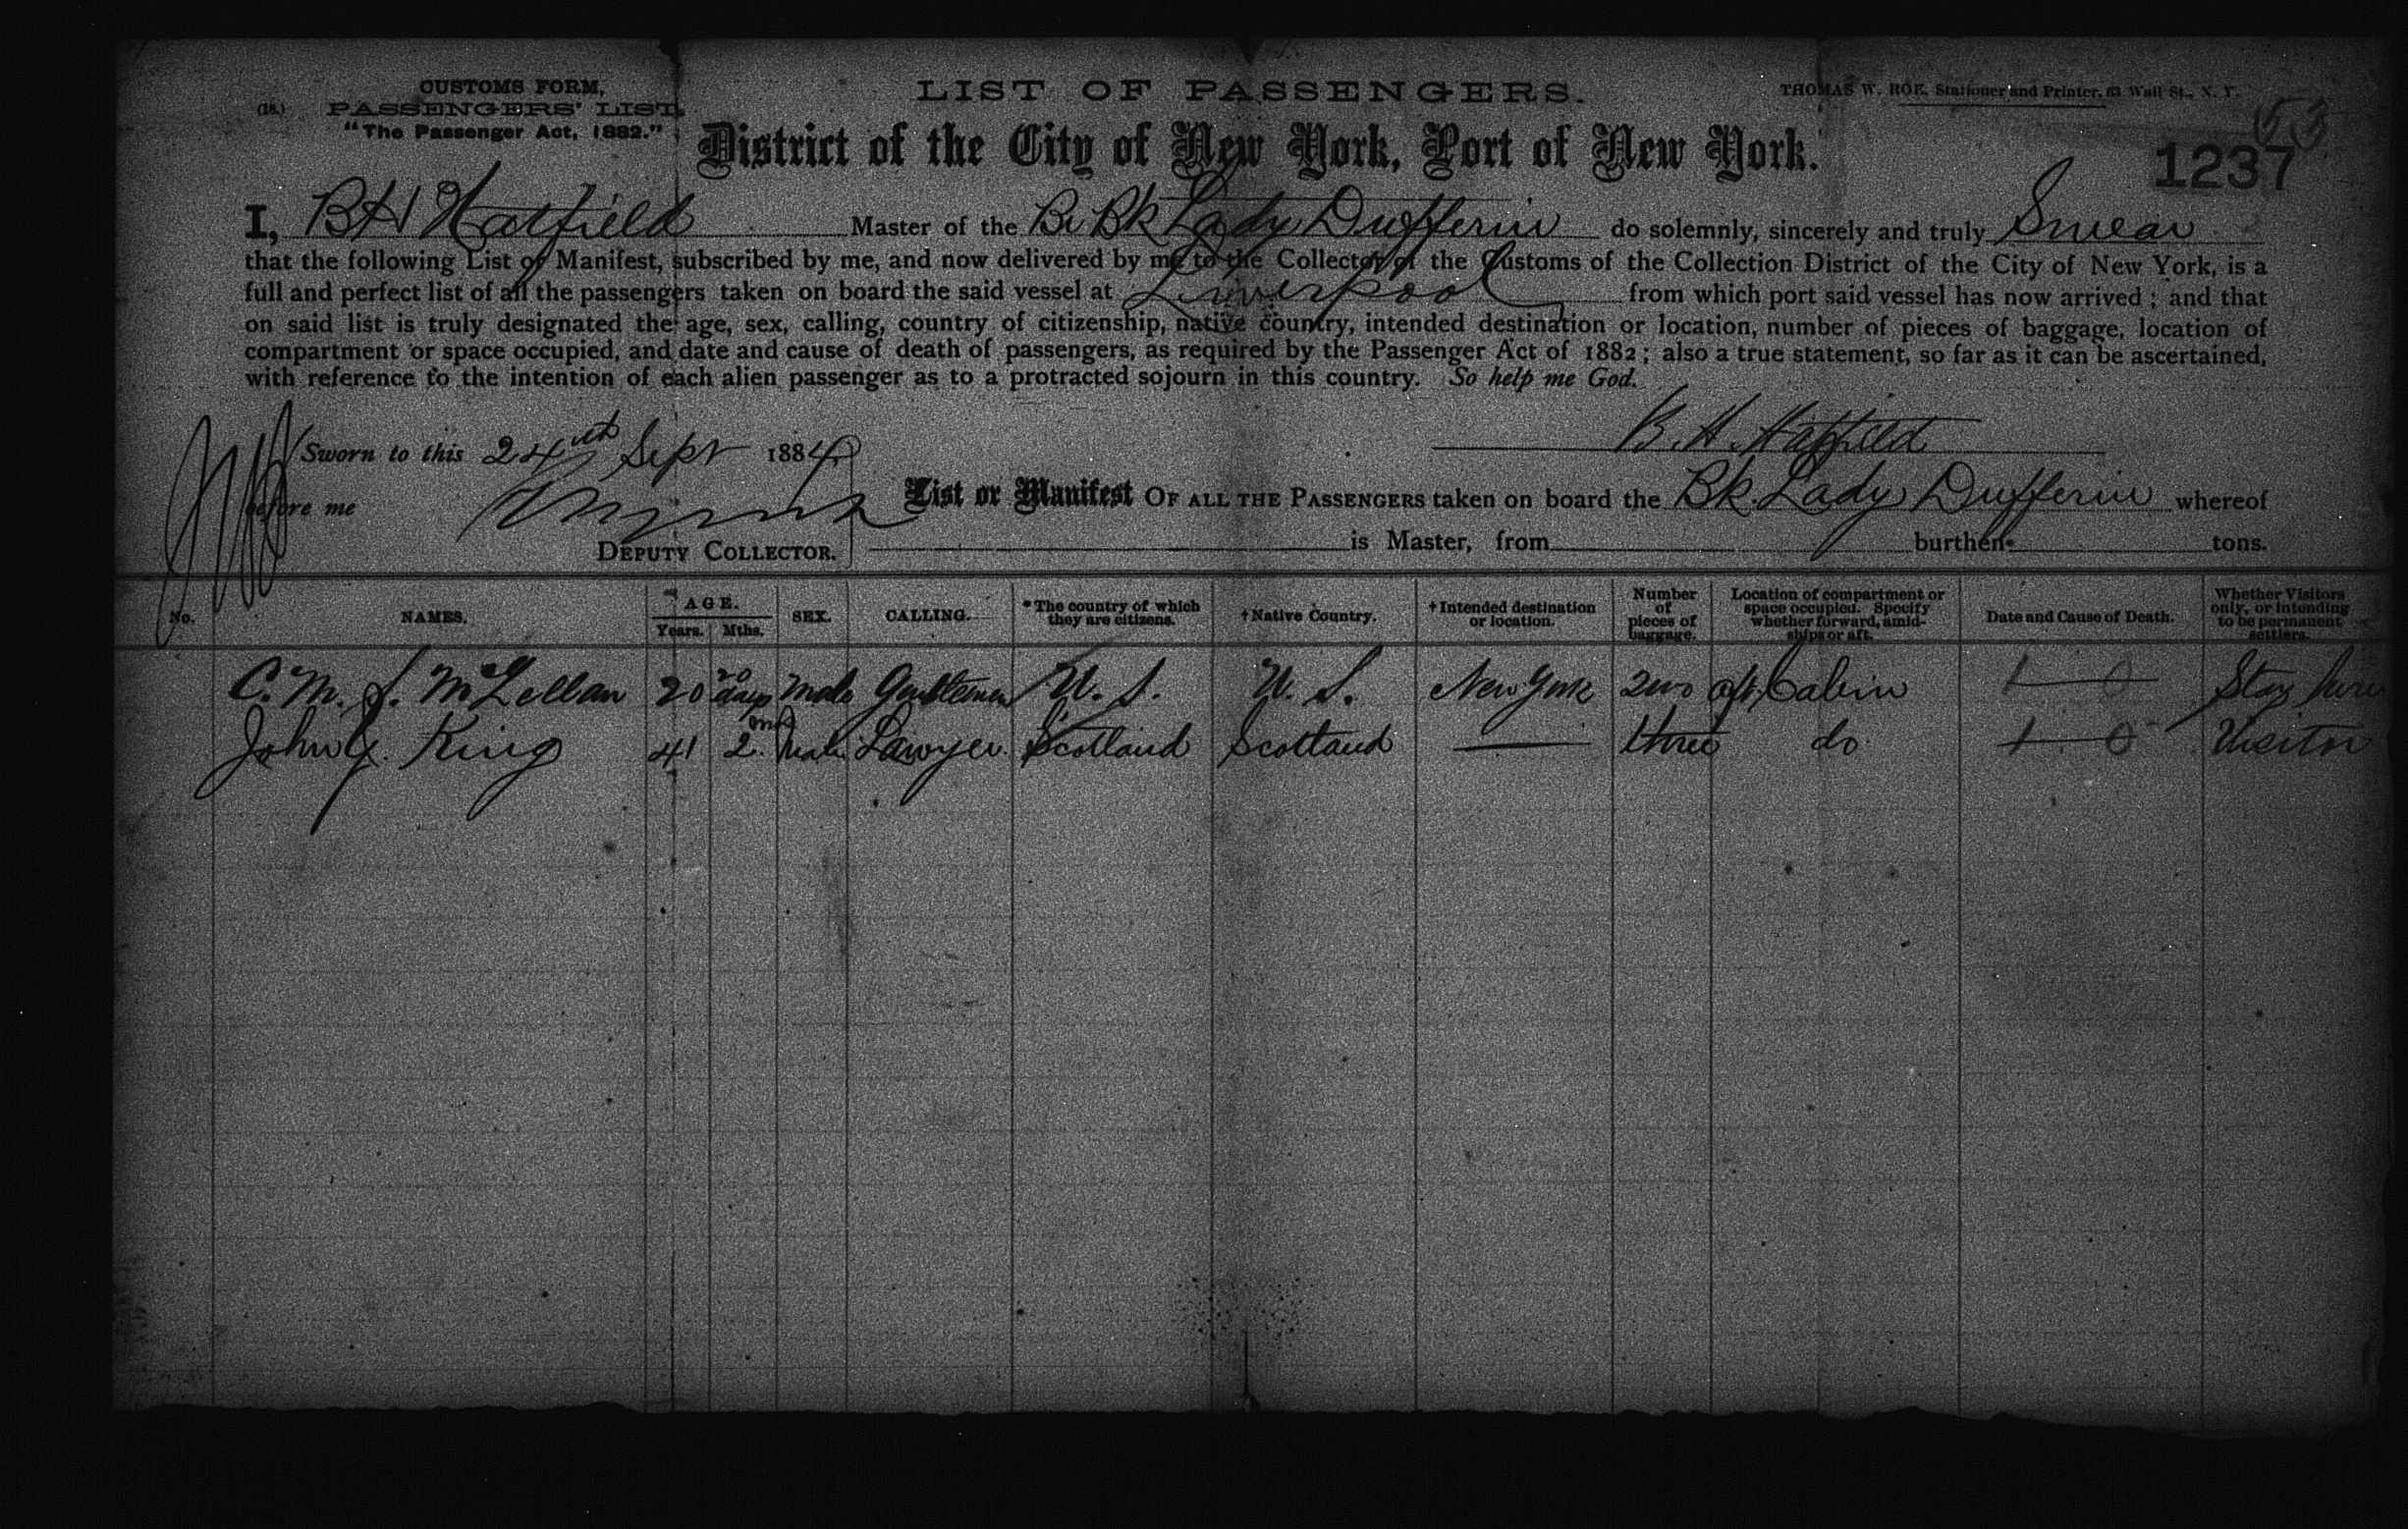 CUSTOMS FORM,
(18.) PASSENGERS' LIST.
"The Passenger Act, 1882."
LIST OF PASSENGERS.
THOMAS W. ROE, Stationer and Printer, 63 Wall St., N. Y.
53
1237
District of the City of New York, Port of New York.
I, B H Hatfield Master of the Br Bk Lady Dufferin do solemnly, sincerely and truly Swear
that the following List or Manifest, subscribed by me, and now delivered by me to the Collector of the Customs of the Collection District of the City of New York, is a
full and perfect list of all the passengers taken on board the said vessel at Liverpool from which port said vessel has now arrived; and that
on said list is truly designated the age, sex, calling, country of citizenship, native country, intended destination or location, number of pieces of baggage, location of
compartment or space occupied, and date and cause of death of passengers, as required by the Passenger Act of 1882; also a true statement, so far as it can be ascertained,
with reference to the intention of each alien passenger as to a protracted sojourn in this country. So help me God.
B. H. Hatfield
Sworn to this 24th Sept 1884
before me
DEPUTY COLLECTOR.
List or Manifest OF ALL THE PASSENGERS taken on board the Bk. Lady Dufferin whereof
is Master, from burthen tons.
No. NAMES. AGE. Years. Mths. SEX. CALLING. *The country of which they are citizens. †Native Country. †Intended destination or location. Number of pieces of baggage. Location of compartment or space occupied. Specify whether forward, amidships or aft. Date and Cause of Death. Whether Visitors only, or intending to be permanent settlers.
C. M. S. McLellan 20 20 days Male Gentleman U. S. U. S. New York two aft Cabin Stay here
John King 41 2 m Male Lawyer. Scotland Scotland three do Visitor